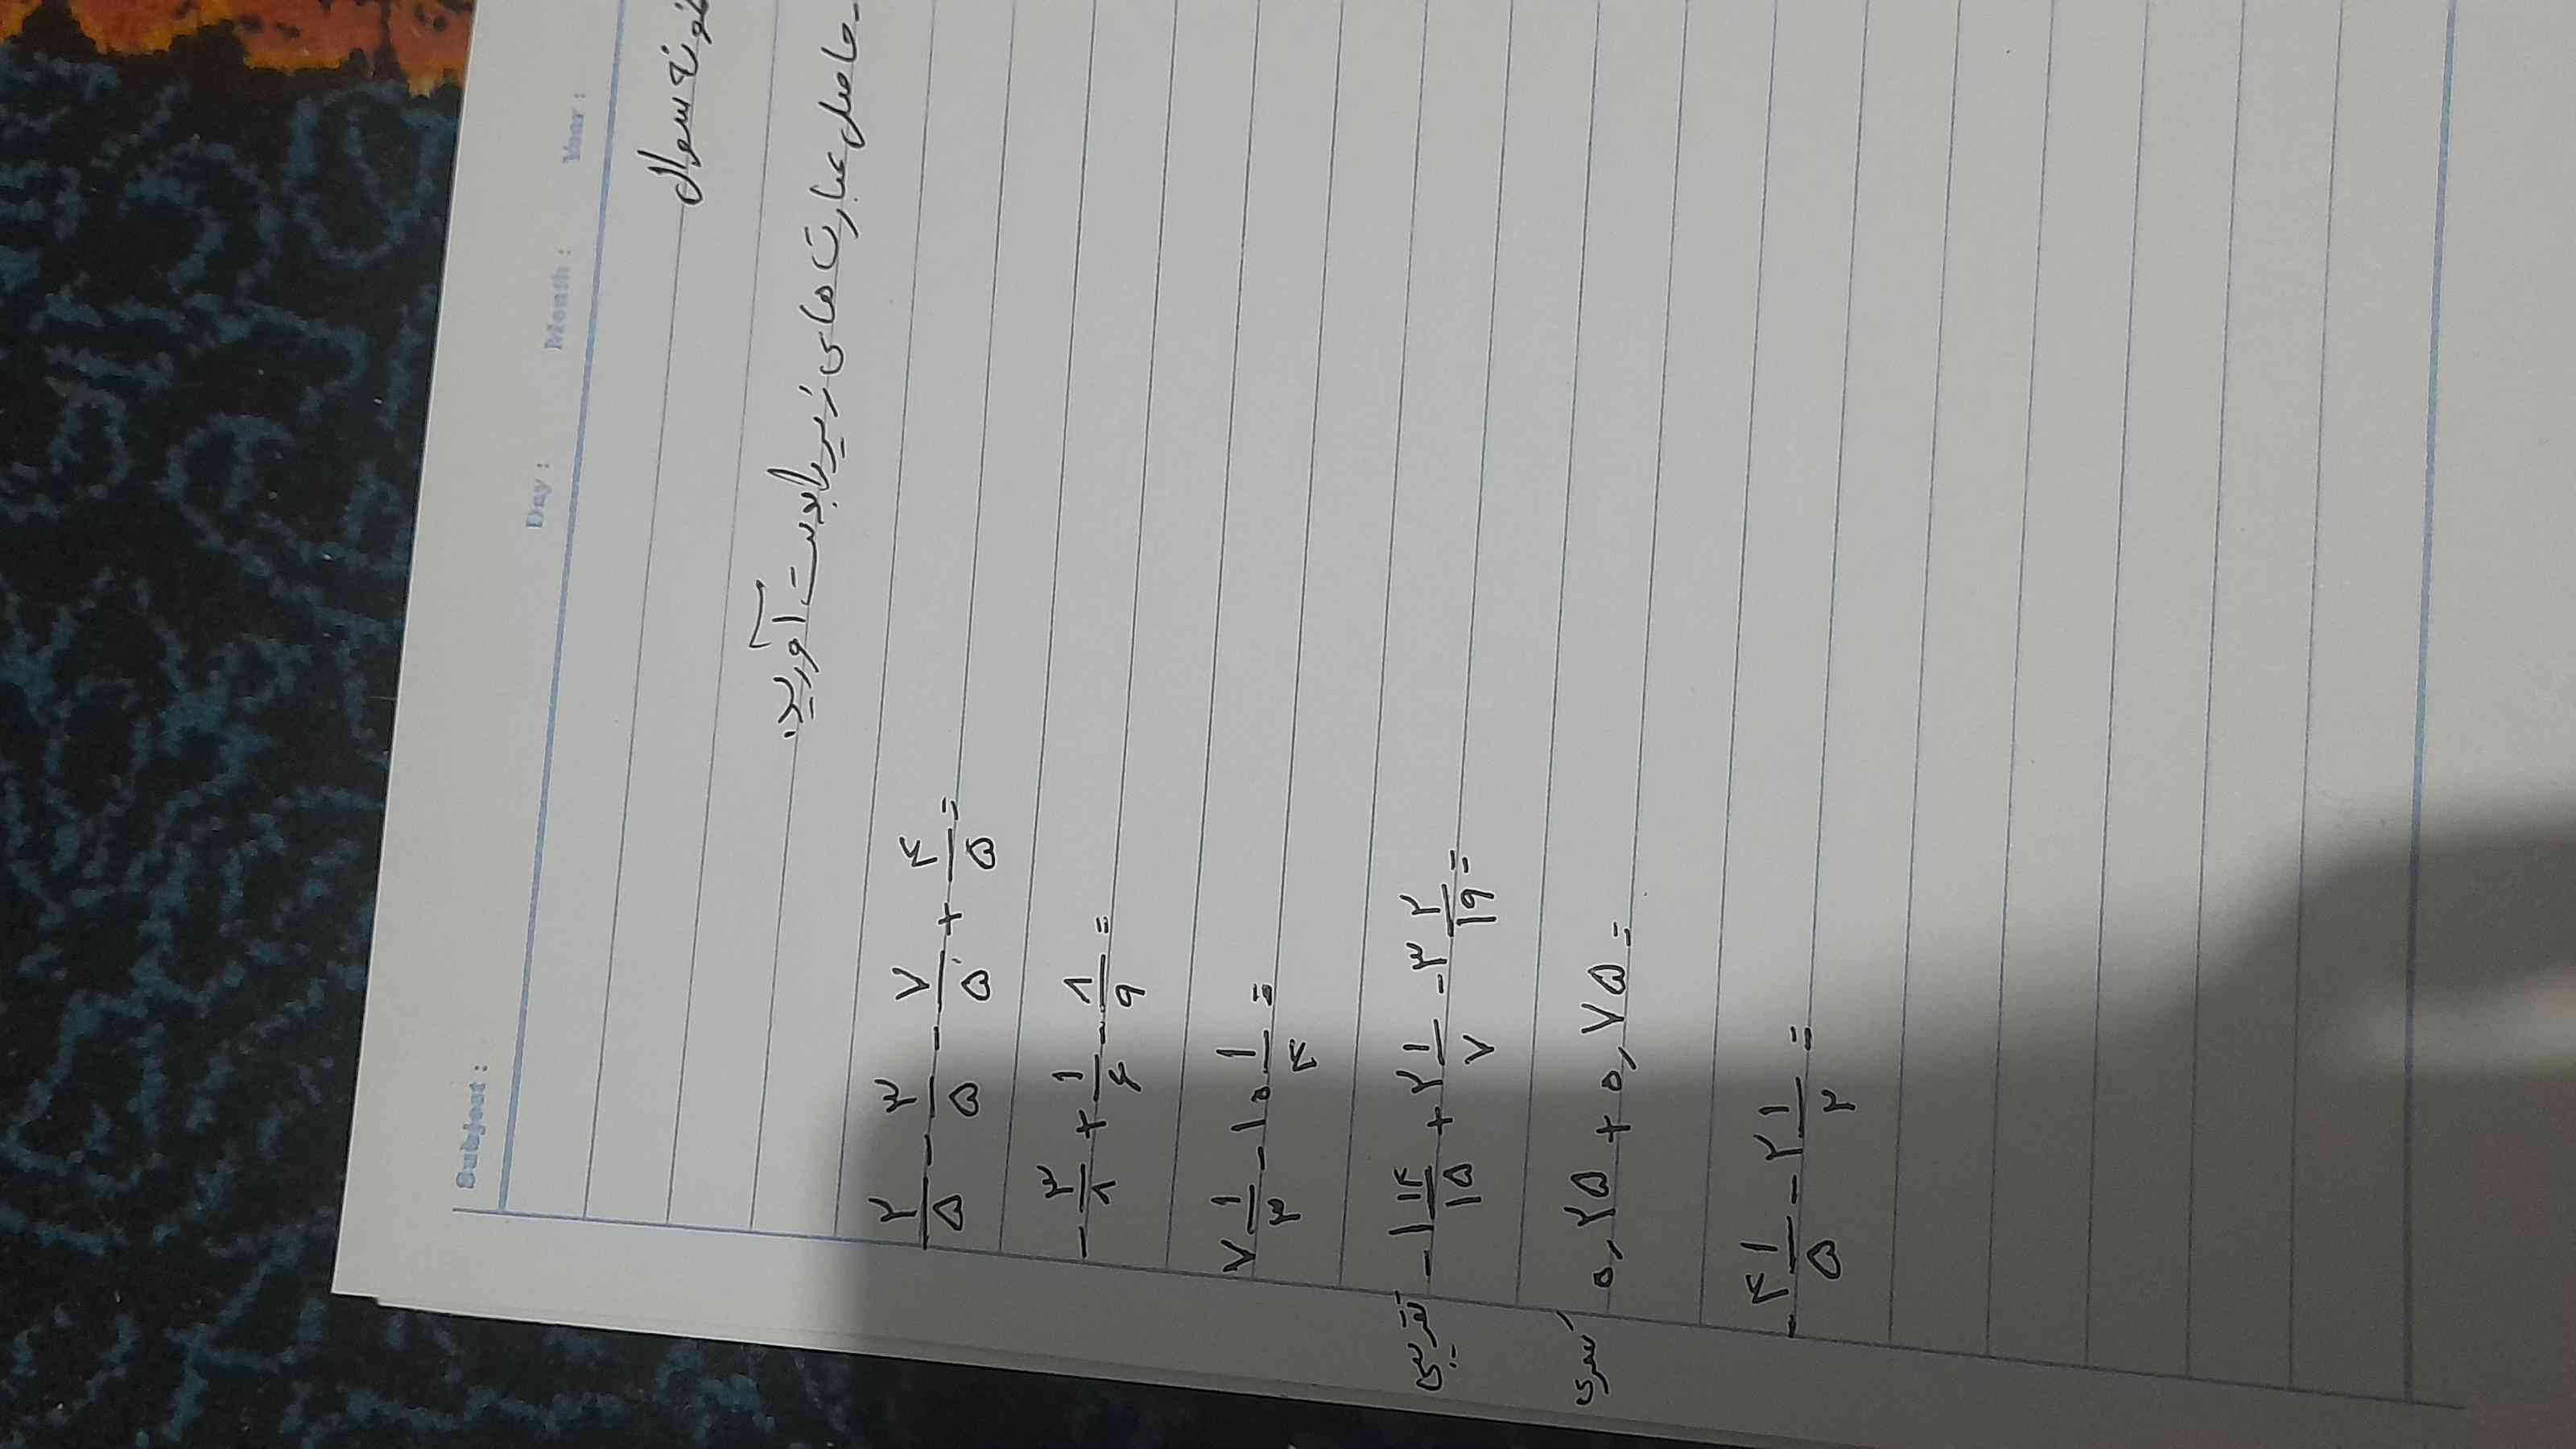 Subject : Day : Month : Year :
نمونه سوال
حاصل عبارت های زیر را بدست آورید.
۲/۵ - ۳/۵ - ۷/۵ + ۴/۵ =
-۳/۸ + ۱/۶ - ۸/۹ =
۷ ۱/۳ - ۱۰ ۱/۴ =
تقریبی -۱ ۱۴/۱۵ + ۲ ۱/۷ - ۳ ۲/۱۹ =
کسری ۰٫۲۵ + ۰٫۷۵ =
-۴ ۱/۵ - ۲ ۱/۲ =